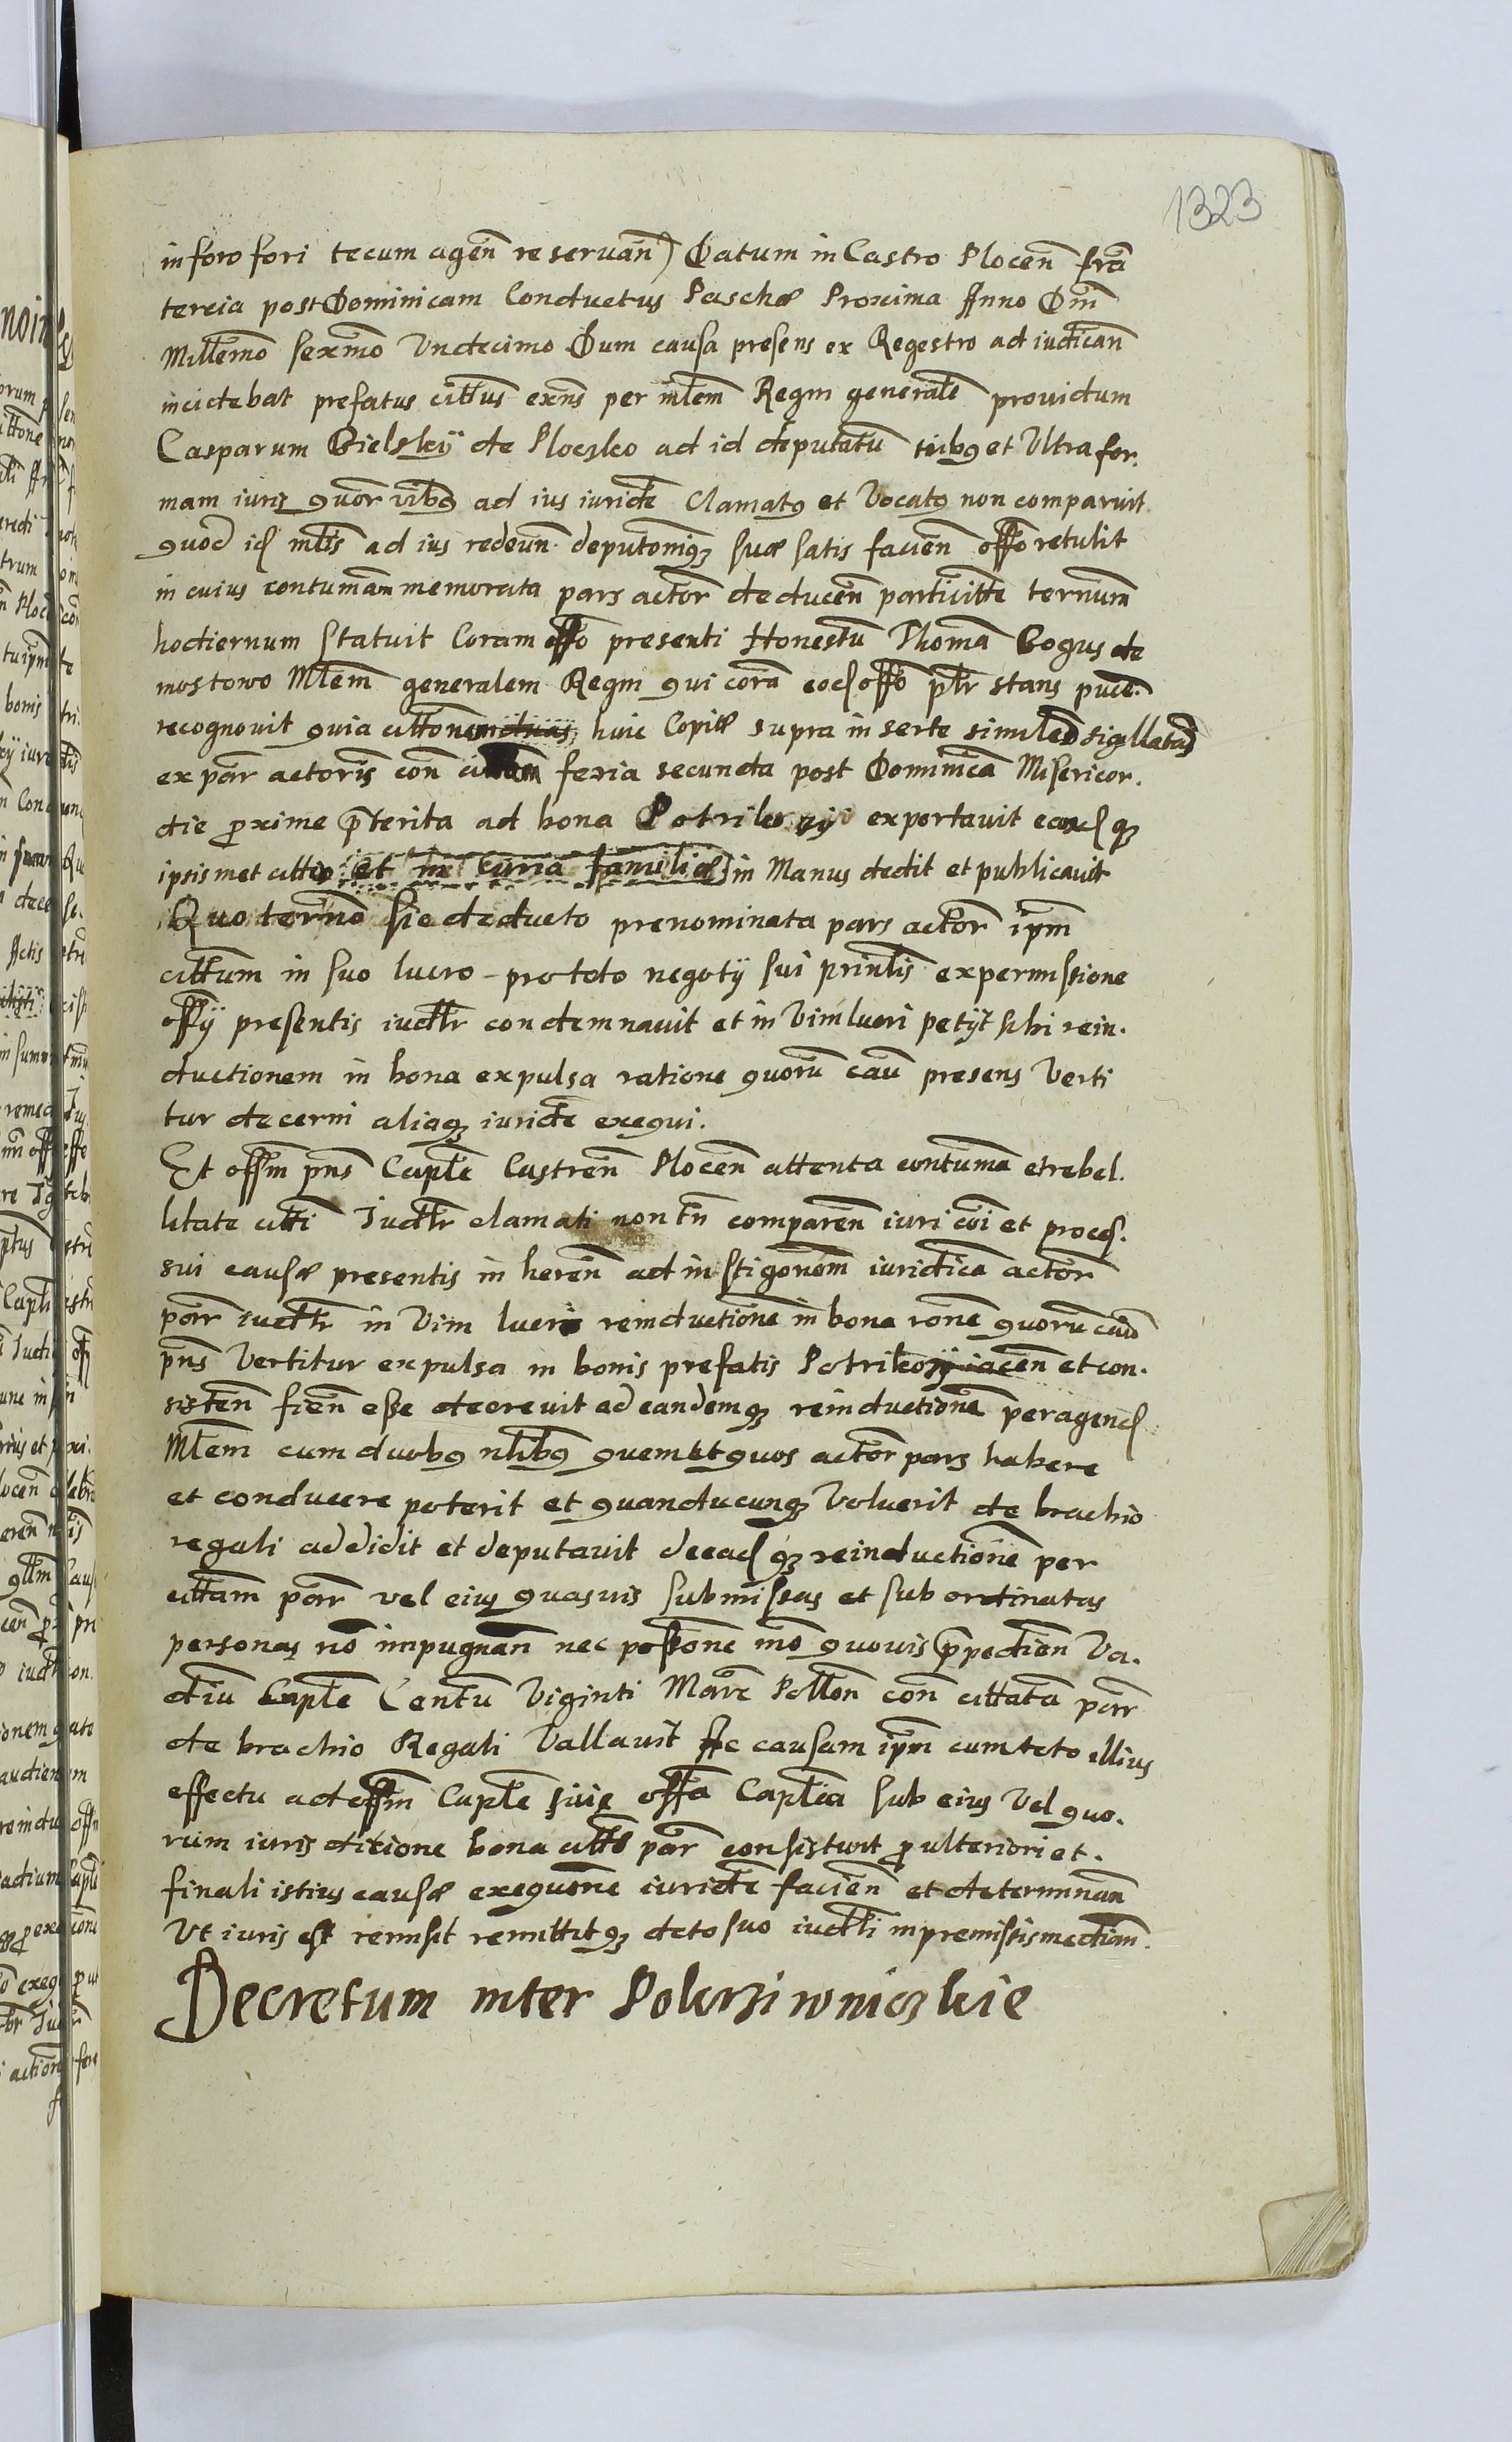 1323
in foro fori tecum agen̄ reseruan̄) Datum in Castro Plocen̄ fr̄a
tercia post Dominicam Conductus Paschæ Proxima Anno Dn̄i
Millemo sexmo Vndecimo Dum causa presens ex Regestro ad iudican̄
incidebat prefatus cittus exn̄s per mlem Regni generale prouidum
Casparum Bielskÿ de Plocsko ad id deputatū tribq et Vltra for.
mam iuris quor vibq ad ius iuridce Clamatq et Vocatq non comparuit
quod id mlis ad ius redeun̄ deputonīq; suæ satis facien̄ offo retulit
in cuius contumam memorata pars actor̄ deducen̄ particitte ternum
hodiernum statuit Coram offo presenti Honestū Thomā Bogus de
mostowo Mlem generalem Regni qui corā eod offo plr stans puce.
recognouit quia cittonem huic Copiæ supra in serte similem sigillatam
ex par̄ actoris con̄ feria secunda post Dominicā Misericor.
die proxime prterita ad bona Potrikozÿ exportauit eandq;
ipsismet citto et in curia familiæ in Manus dedit et publicauit
Quo terno sic deducto prenominata pars actor̄ ipm
cittum in suo lucro protcto negotÿ sui prinlis ex permissione
offÿ presentis iudlr condemnauit et in Vim lucri petÿt sibi rein.
ductionem in bona expulsa ratione quorū cau presens Verti
tur decerni aliaq; iuridce exequi.
Et offm pn̄s Caple Castren̄ Plocen̄ attenta contuma et rebel.
litate citti Judlr clamati non tn̄ comparen̄ iuri coi et proces.
sui causæ presentis in heren̄ ad in stigonem iuridica actor̄
par̄ iudlr in Vim lucri reinductione in bona rone quorū cau
pn̄s Vertitur expulsa in bonis prefatis Potrikozÿ iacen̄ et con.
sisten̄ fien̄ esse decreuit ad eandemq; reinductione peragend
Mlem cum duobq nlibq quem et quos actor̄ pars habere
et conducere poterit et quanducunq; Voluerit de brachio
regali addidit et deputauit de eadq; reinductione per
cittam par̄ vel eius quasuis submissas et sub ordinatas
personas nō impugnan̄ nec possone mō quouis prpedien̄ Va.
diū Caple Centū Viginti Marc Pollon con̄ cittatā par̄
de brachio Regali Vallauit Ac causam ipm cum tcto illius
effectu ad offm Caple siuie offa Caplia sub eius Vel quo.
rum iuris dicione bona citte par̄ consistunt p ulteriori et.
finali istius causæ exequone iuridce facien̄ et determinan̄
Vt iuris est remisit remittitq; dcto suo iudli in premissis median̄.
Decretum inter Pokrziwniczkie